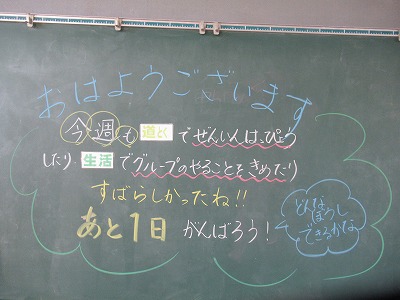 おはようございます
今週も 道とく で ぜんいんはっぴょう
したり 生活 で グループのやることをきめたり
すばらしかったね!!
あと1日 がんばろう!
どんな
ぼうし
できるかな